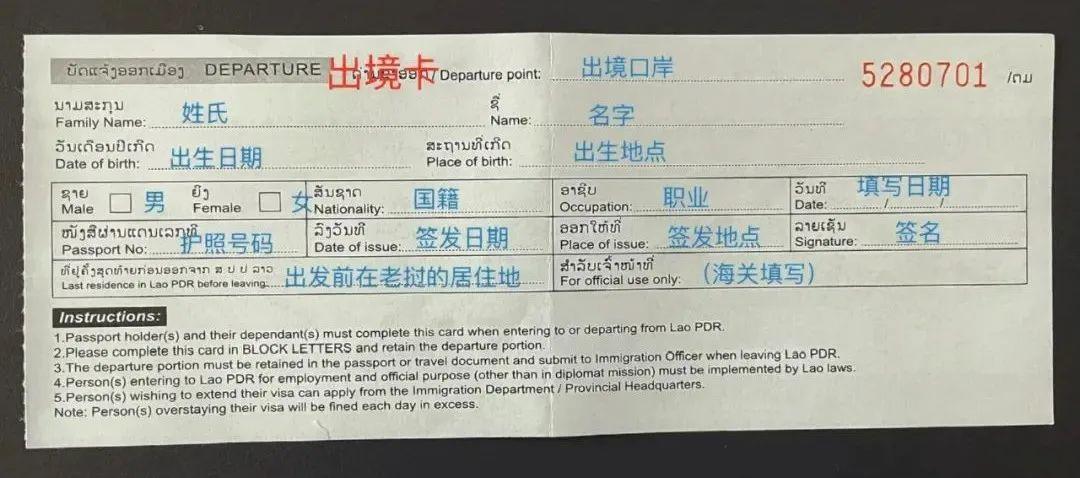 ບັດແຈ້ງອອກເມືອງ DEPARTURE 出境卡 / Departure point: 出境口岸 5280701 /ຕມ
ນາມສະກຸນ ຊື່
Family Name: 姓氏 Name: 名字
ວັນເດືອນປີເກີດ ສະຖານທີ່ເກີດ
Date of birth: 出生日期 Place of birth: 出生地点
ຊາຍ ຍິງ ສັນຊາດ ອາຊີບ ວັນທີ
Male 男 Female 女 Nationality: 国籍 Occupation: 职业 Date: 填写日期 / /
ໜັງສືຜ່ານແດນເລກທີ ລົງວັນທີ ອອກໃຫ້ທີ່ ລາຍເຊັນ
Passport No: 护照号码 Date of issue: 签发日期 Place of issue: 签发地点 Signature: 签名
ທີ່ຢູ່ຄັ້ງສຸດທ້າຍກ່ອນອອກຈາກ ສ ປ ປ ລາວ ສຳລັບເຈົ້າໜ້າທີ່
Last residence in Lao PDR before leaving: 出发前在老挝的居住地 For official use only: (海关填写)
Instructions:
1.Passport holder(s) and their dependant(s) must complete this card when entering to or departing from Lao PDR.
2.Please complete this card in BLOCK LETTERS and retain the departure portion.
3.The departure portion must be retained in the passport or travel document and submit to Immigration Officer when leaving Lao PDR.
4.Person(s) entering to Lao PDR for employment and official purpose (other than in diplomat mission) must be implemented by Lao laws.
5.Person(s) wishing to extend their visa can apply from the Immigration Department / Provincial Headquarters.
Note: Person(s) overstaying their visa will be fined each day in excess.